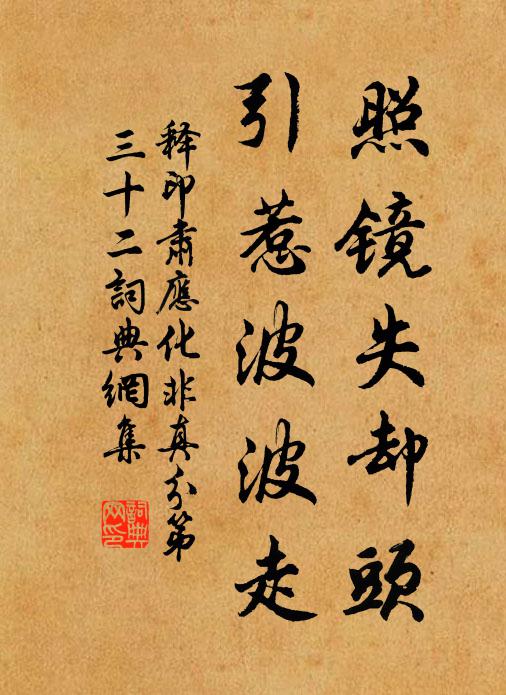 照镜失却頭
引惹波波走
释印肃應化非真分第
三十二詞典網集
詞典
网印